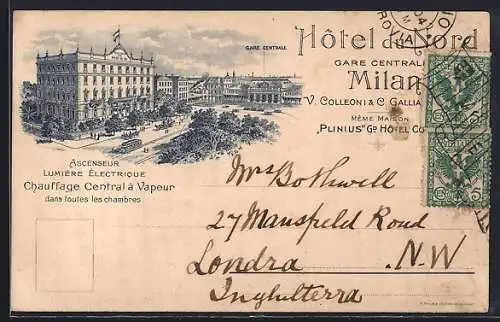 GARE CENTRALE
Hôtel du Nord
GARE CENTRALE
Milan
V. COLLEONI & C. GALLIA
MÊME MAISON
"PLINIUS" Gd HÔTEL CO
ASCENSEUR
LUMIÈRE ÉLECTRIQUE
Chauffage Central à Vapeur
dans toutes les chambres
Mrs Bothwell
27 Mansfeld Road
Londra N.W
Inghilterra